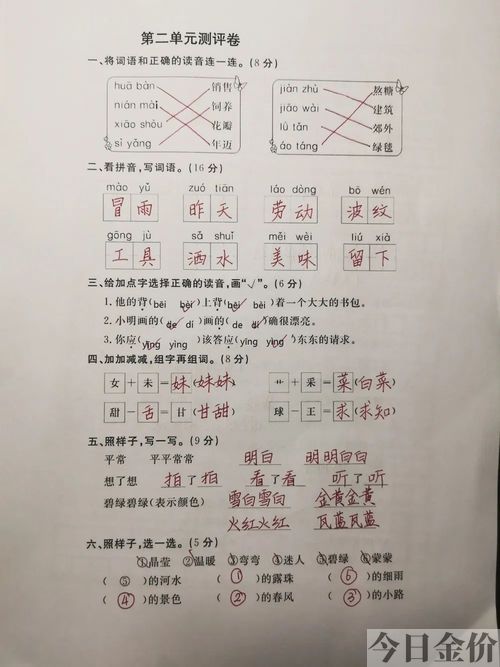 第二单元测评卷
一、将词语和正确的读音连一连。(8分)
huā bàn 销售 jiàn zhù 熬糖
nián mài 饲养 jiāo wài 建筑
xiāo shòu 花瓣 lǜ tǎn 郊外
sì yǎng 年迈 áo táng 绿毯
二、看拼音,写词语。(16分)
mào yǔ zuó tiān láo dòng bō wén
冒雨 昨天 劳动 波纹
gōng jù sǎ shuǐ měi wèi liú xià
工具 洒水 美味 留下
三、给加点字选择正确的读音,画“√”。(6分)
1.他的背(bēi bèi)上背(bēi bèi)着一个大大的书包。
2.小明画的(de dí)画的(de dí)确很漂亮。
3.你应(yīng yìng)该答应(yīng yìng)东东的请求。
四、加加减减,组字再组词。(8分)
女+未=妹(妹妹) 艹+采=菜(白菜)
甜-舌=甘(甘甜) 球-王=求(求知)
五、照样子,写一写。(9分)
平常 平平常常 明白 明明白白
想了想 拍了拍 看了看 听了听
碧绿碧绿(表示颜色) 雪白雪白 金黄金黄
火红火红 瓦蓝瓦蓝
六、照样子,选一选。(5分)
①晶莹 ②温暖 ③弯弯 ④迷人 ⑤碧绿 ⑥蒙蒙
(⑤)的河水 (①)的露珠 (⑥)的细雨
(④)的景色 (②)的春风 (③)的小路
今日金价